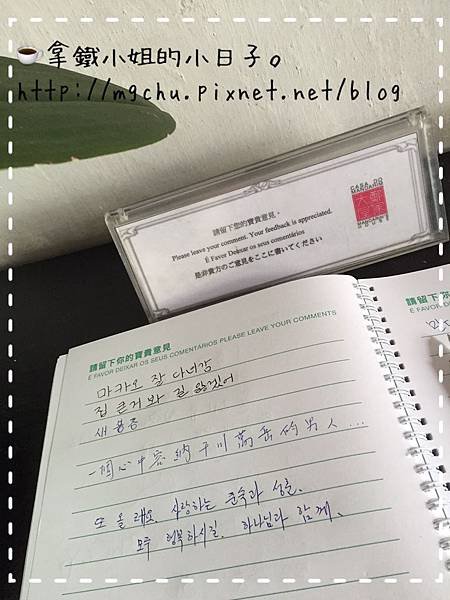 拿鐵小姐的小日子。
http://mgchu.pixnet.net/blog
CASA DO MANDARIM
請留下您的寶貴意見。
Please leave your comment. Your feedback is appreciated.
É Favor Deixar os seus comentários
是非貴方のご意見をここに書いてください
請留下你的寶貴意見
É FAVOR DEIXAR OS SEUS COMENTÁRIOS PLEASE LEAVE YOUR COMMENTS
請留下你
É FAVOR DEIXAR
마카오 잘 다녀감
집 큰거 봐 길 잃겠어
새
一個心中容納千川萬岳的男人…
또 올래요. 사랑하는 준숙과 성훈.
모두 행복하시길. 하나님과 함께.